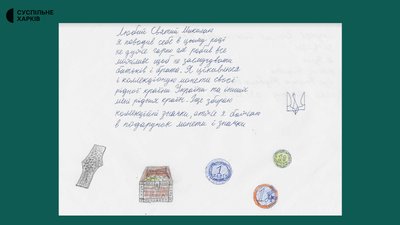 СУСПІЛЬНЕ
ХАРКІВ
Любий Святий Миколаю
Я поводив себе в цьому році
не дуже гарно але робив все
можливе щоб не засмучувати
батьків і брата. Я цікавлюся
і коллекціоную монети своєї
рідної країни України та інших
мені рідних країн. Ще збираю
колекційні значки, отже я бажаю
в подарунок монети і значки
1